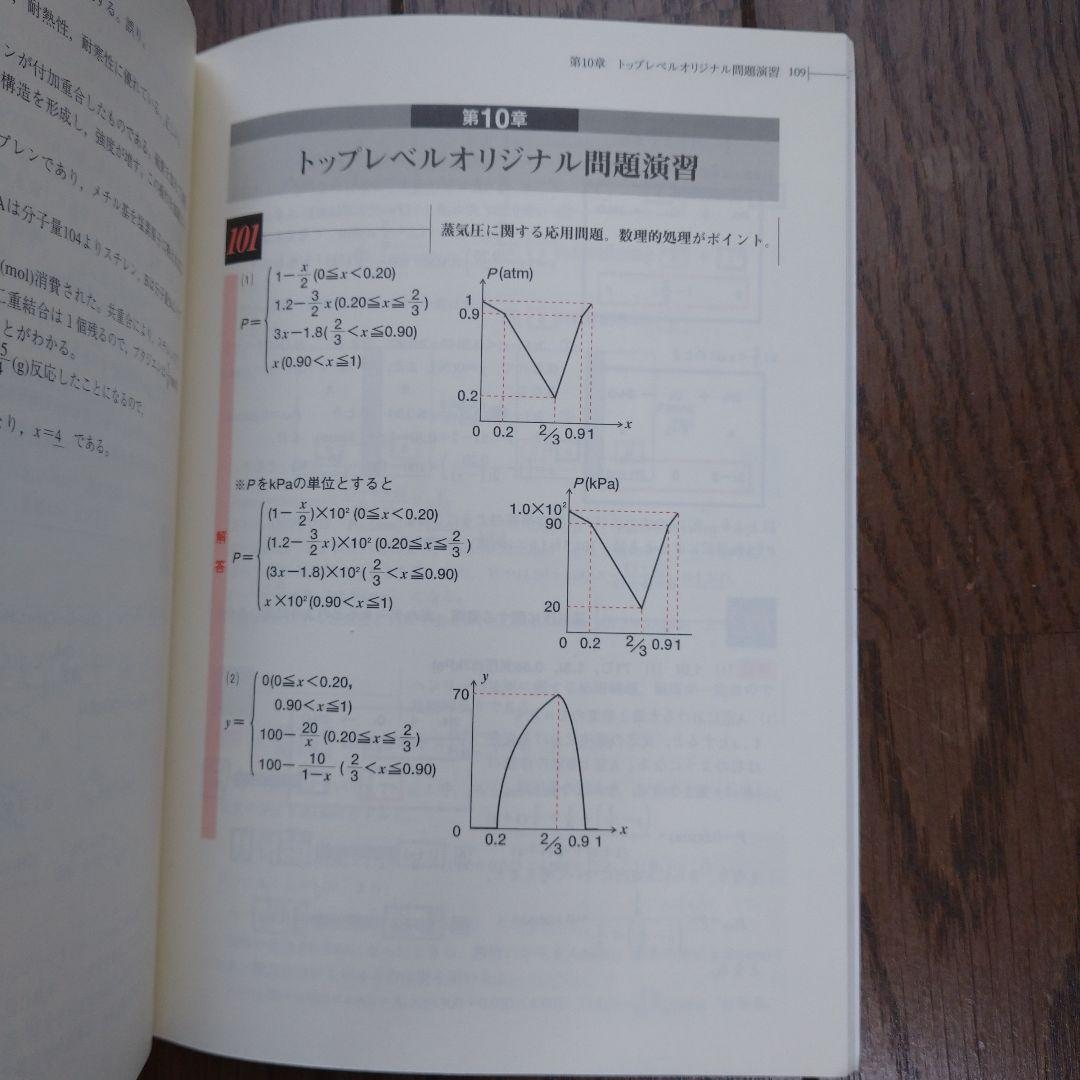 する。誤り。
，耐熱性，耐寒性に優れている。正しい
ンが付加重合したものである。
構造を形成し，強度が増す。この
プレンであり，メチル基を
Aは分子量104よりスチレン，Bは
(mol)消費された。共重合により，
二重結合は1個残るので，ブタジエン
とがわかる。
5
4 (g)反応したことになるので，
り，x＝4 である。
第10章 トップレベルオリジナル問題演習 109
第10章
トップレベルオリジナル問題演習
101
蒸気圧に関する応用問題。数理的処理がポイント。
解答
(1)
P＝
1－x/2 (0≦x＜0.20)
1.2－3/2 x (0.20≦x≦2/3)
3x－1.8(2/3＜x≦0.90)
x (0.90＜x≦1)
P(atm)
1
0.9
0.2
0 0.2 2/3 0.9 1 x
※PをkPaの単位とすると
P＝
(1－x/2)×10² (0≦x＜0.20)
(1.2－3/2 x)×10² (0.20≦x≦2/3)
(3x－1.8)×10² (2/3＜x≦0.90)
x×10² (0.90＜x≦1)
P(kPa)
1.0×10²
90
20
0 0.2 2/3 0.9 1
(2)
y＝
0(0≦x＜0.20,
0.90＜x≦1)
100－20/x (0.20≦x≦2/3)
100－10/1－x (2/3＜x≦0.90)
y
70
0
0.2 2/3 0.9 1 x